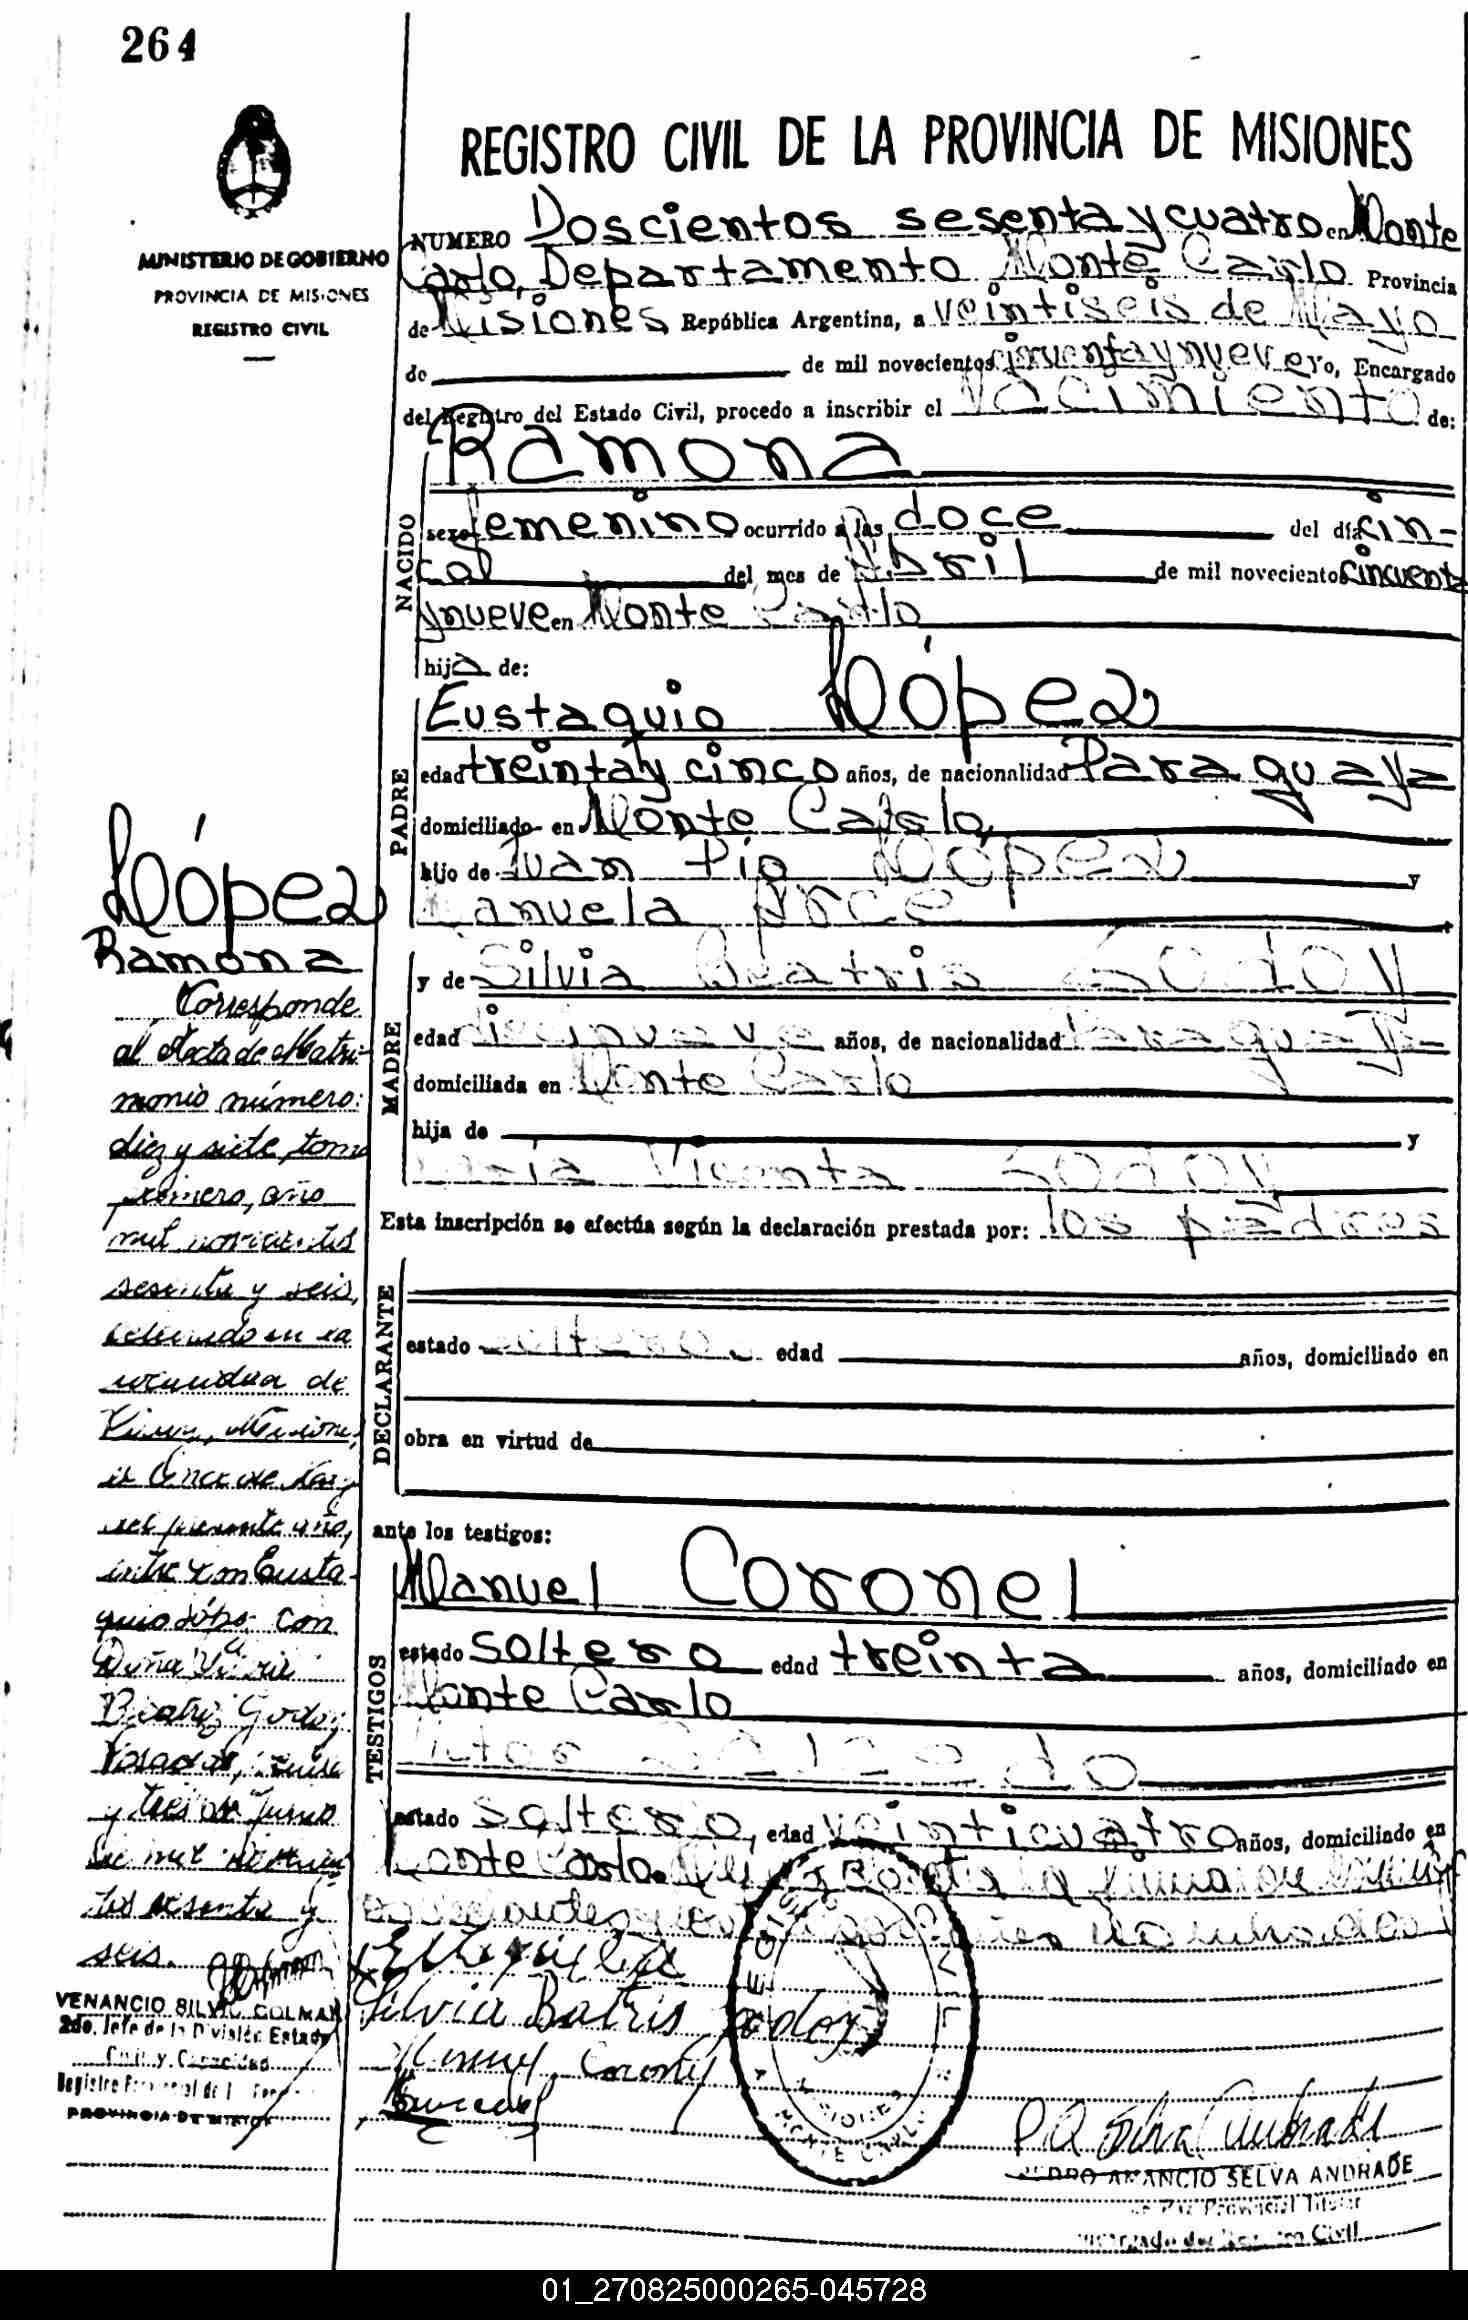 264
REGISTRO CIVIL DE LA PROVINCIA DE MISIONES
MINISTERIO DE GOBIERNO
PROVINCIA DE MISIONES
REGISTRO CIVIL
NUMERO Doscientos sesenta y cuatro en Monte
Carlo, Departamento Monte Carlo Provincia
de Misiones República Argentina, a veintiseis de Mayo
de de mil novecientos cincuenta y nueve yo, Encargado
del Registro del Estado Civil, procedo a inscribir el Nacimiento de:
NACIDO
Ramona
sexo femenino ocurrido a las doce del día cin-
co del mes de Abril de mil novecientos cincuenta
y nueve en Monte Carlo
hija de:
PADRE
Eustaquio López
edad treinta y cinco años, de nacionalidad Paraguaya
domiciliado en Monte Carlo,
hijo de Juan Pio López y
Manuela Arce
MADRE
y de Silvia Beatris Godoy
edad diecinueve años, de nacionalidad Paraguay-
domiciliada en Monte Carlo
hija de y
Vicenta Godoy
Esta inscripción se efectúa según la declaración prestada por: los padres
DECLARANTE
estado solteros edad años, domiciliado en
obra en virtud de
ante los testigos:
TESTIGOS
Manuel Coronel
estado soltero edad treinta años, domiciliado en
Monte Carlo
Victor Salcedo
estado Soltero, edad veinticuatro años, domiciliado en
Monte Carlo. la firma de
López
Ramona
Corresponde
al Acta de Matri-
monio número:
diez y siete, tomo
primero, año
mil novecientos
sesenta y seis,
celebrado en la
de
Misiones,
el
del presente año,
entre Don Eusta-
quio López con
Doña Silvia
Beatriz Godoy
Posadas,
y tres de Junio
de mil novecien
tos sesenta y
seis.
VENANCIO SILVIO COLMAN
2do. Jefe de la División Estado
Civil y Capacidad
PROVINCIA DE MISIONES
Silvia Batris godoy
Coronel
REGISTRO CIVIL
MISIONES
MONTE CARLO
P A Selva Andrade
PEDRO AMANCIO SELVA ANDRADE
Juez de Paz Provincial Titular
Encargado del Registro Civil
01_270825000265-045728